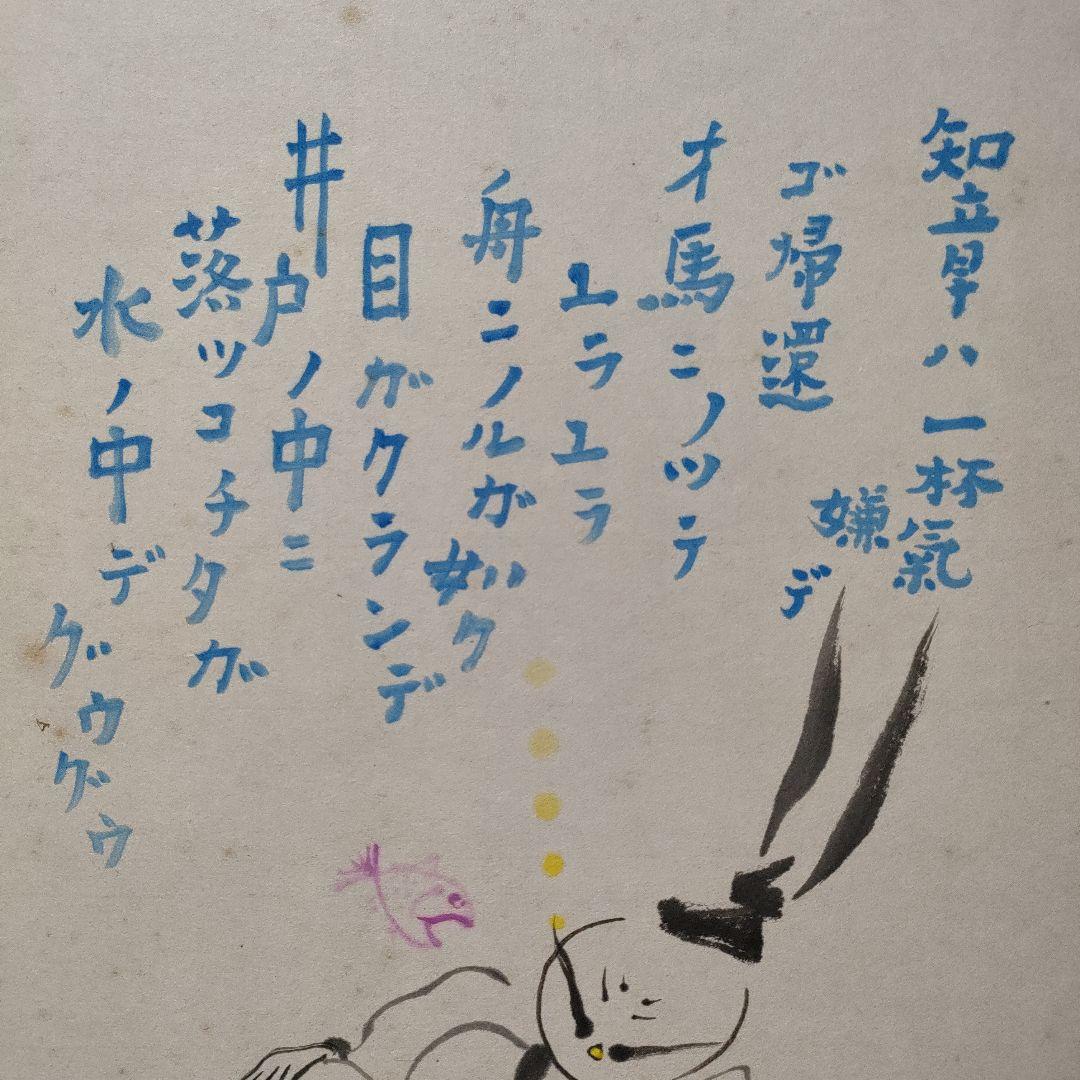 知立早ハ一杯氣
嫌デ
ゴ帰還
オ馬ニノッテ
ユラユラ
舟ニノルガ如ク
目ガクランデ
井戸ノ中ニ
落ツコチタガ
水ノ中デ
グウグウ